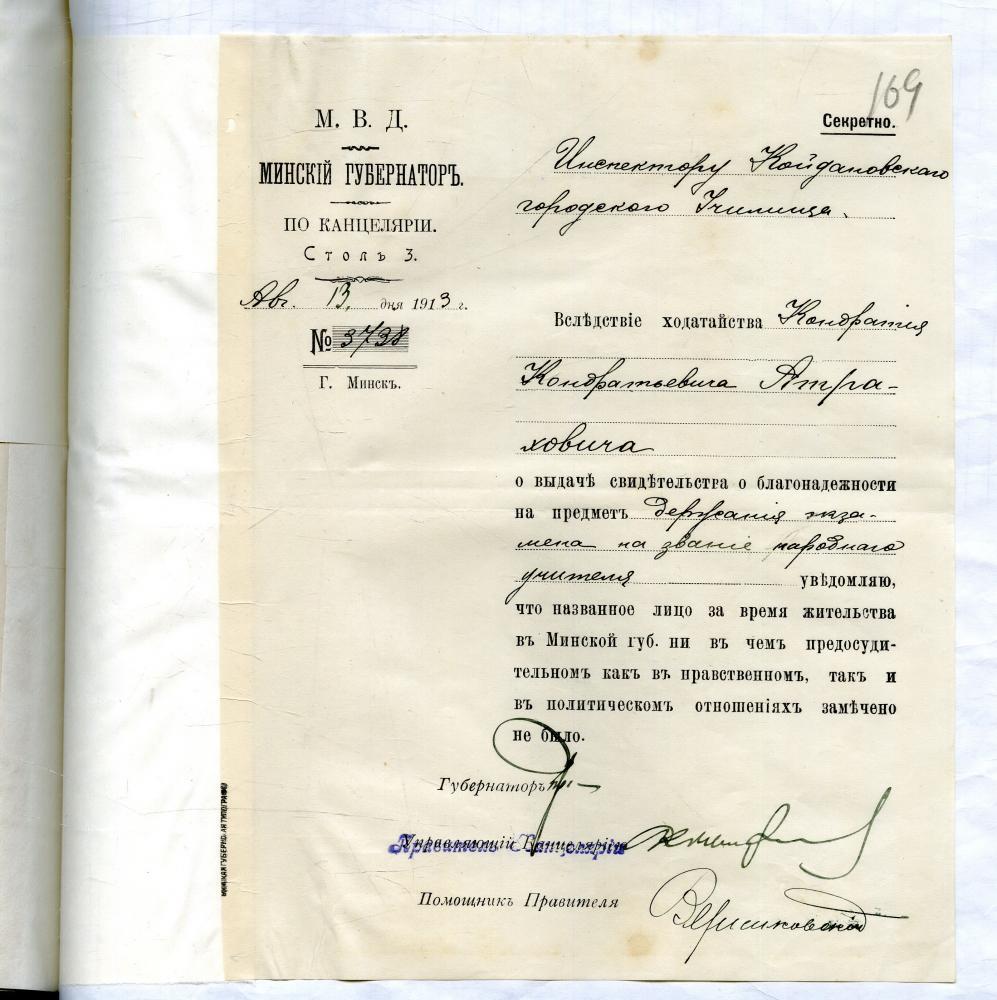 169
М. В. Д.
МИНСКІЙ ГУБЕРНАТОРЪ.
ПО КАНЦЕЛЯРІИ.
Столъ 3.
Авг. 13, дня 1913 г.
№ 3738
Г. Минскъ.
Секретно.
Инспектору Койдановскаго
городского Училища.
Вслѣдствіе ходатайства Кондратія
Кондратьевича Атра-
ховича
о выдачѣ свидѣтельства о благонадежности
на предметъ держанія экза-
мена на званіе народнаго
учителя увѣдомляю,
что названное лицо за время жительства
въ Минской губ. ни въ чемъ предосуди-
тельномъ какъ въ нравственномъ, такъ и
въ политическомъ отношеніяхъ замѣчено
не было.
Губернаторъ
Управляющій Канцеляріею
Правитель Канцеляріи
Помощникъ Правителя
МИНСКАЯ ГУБЕРНСКАЯ ТИПОГРАФІЯ